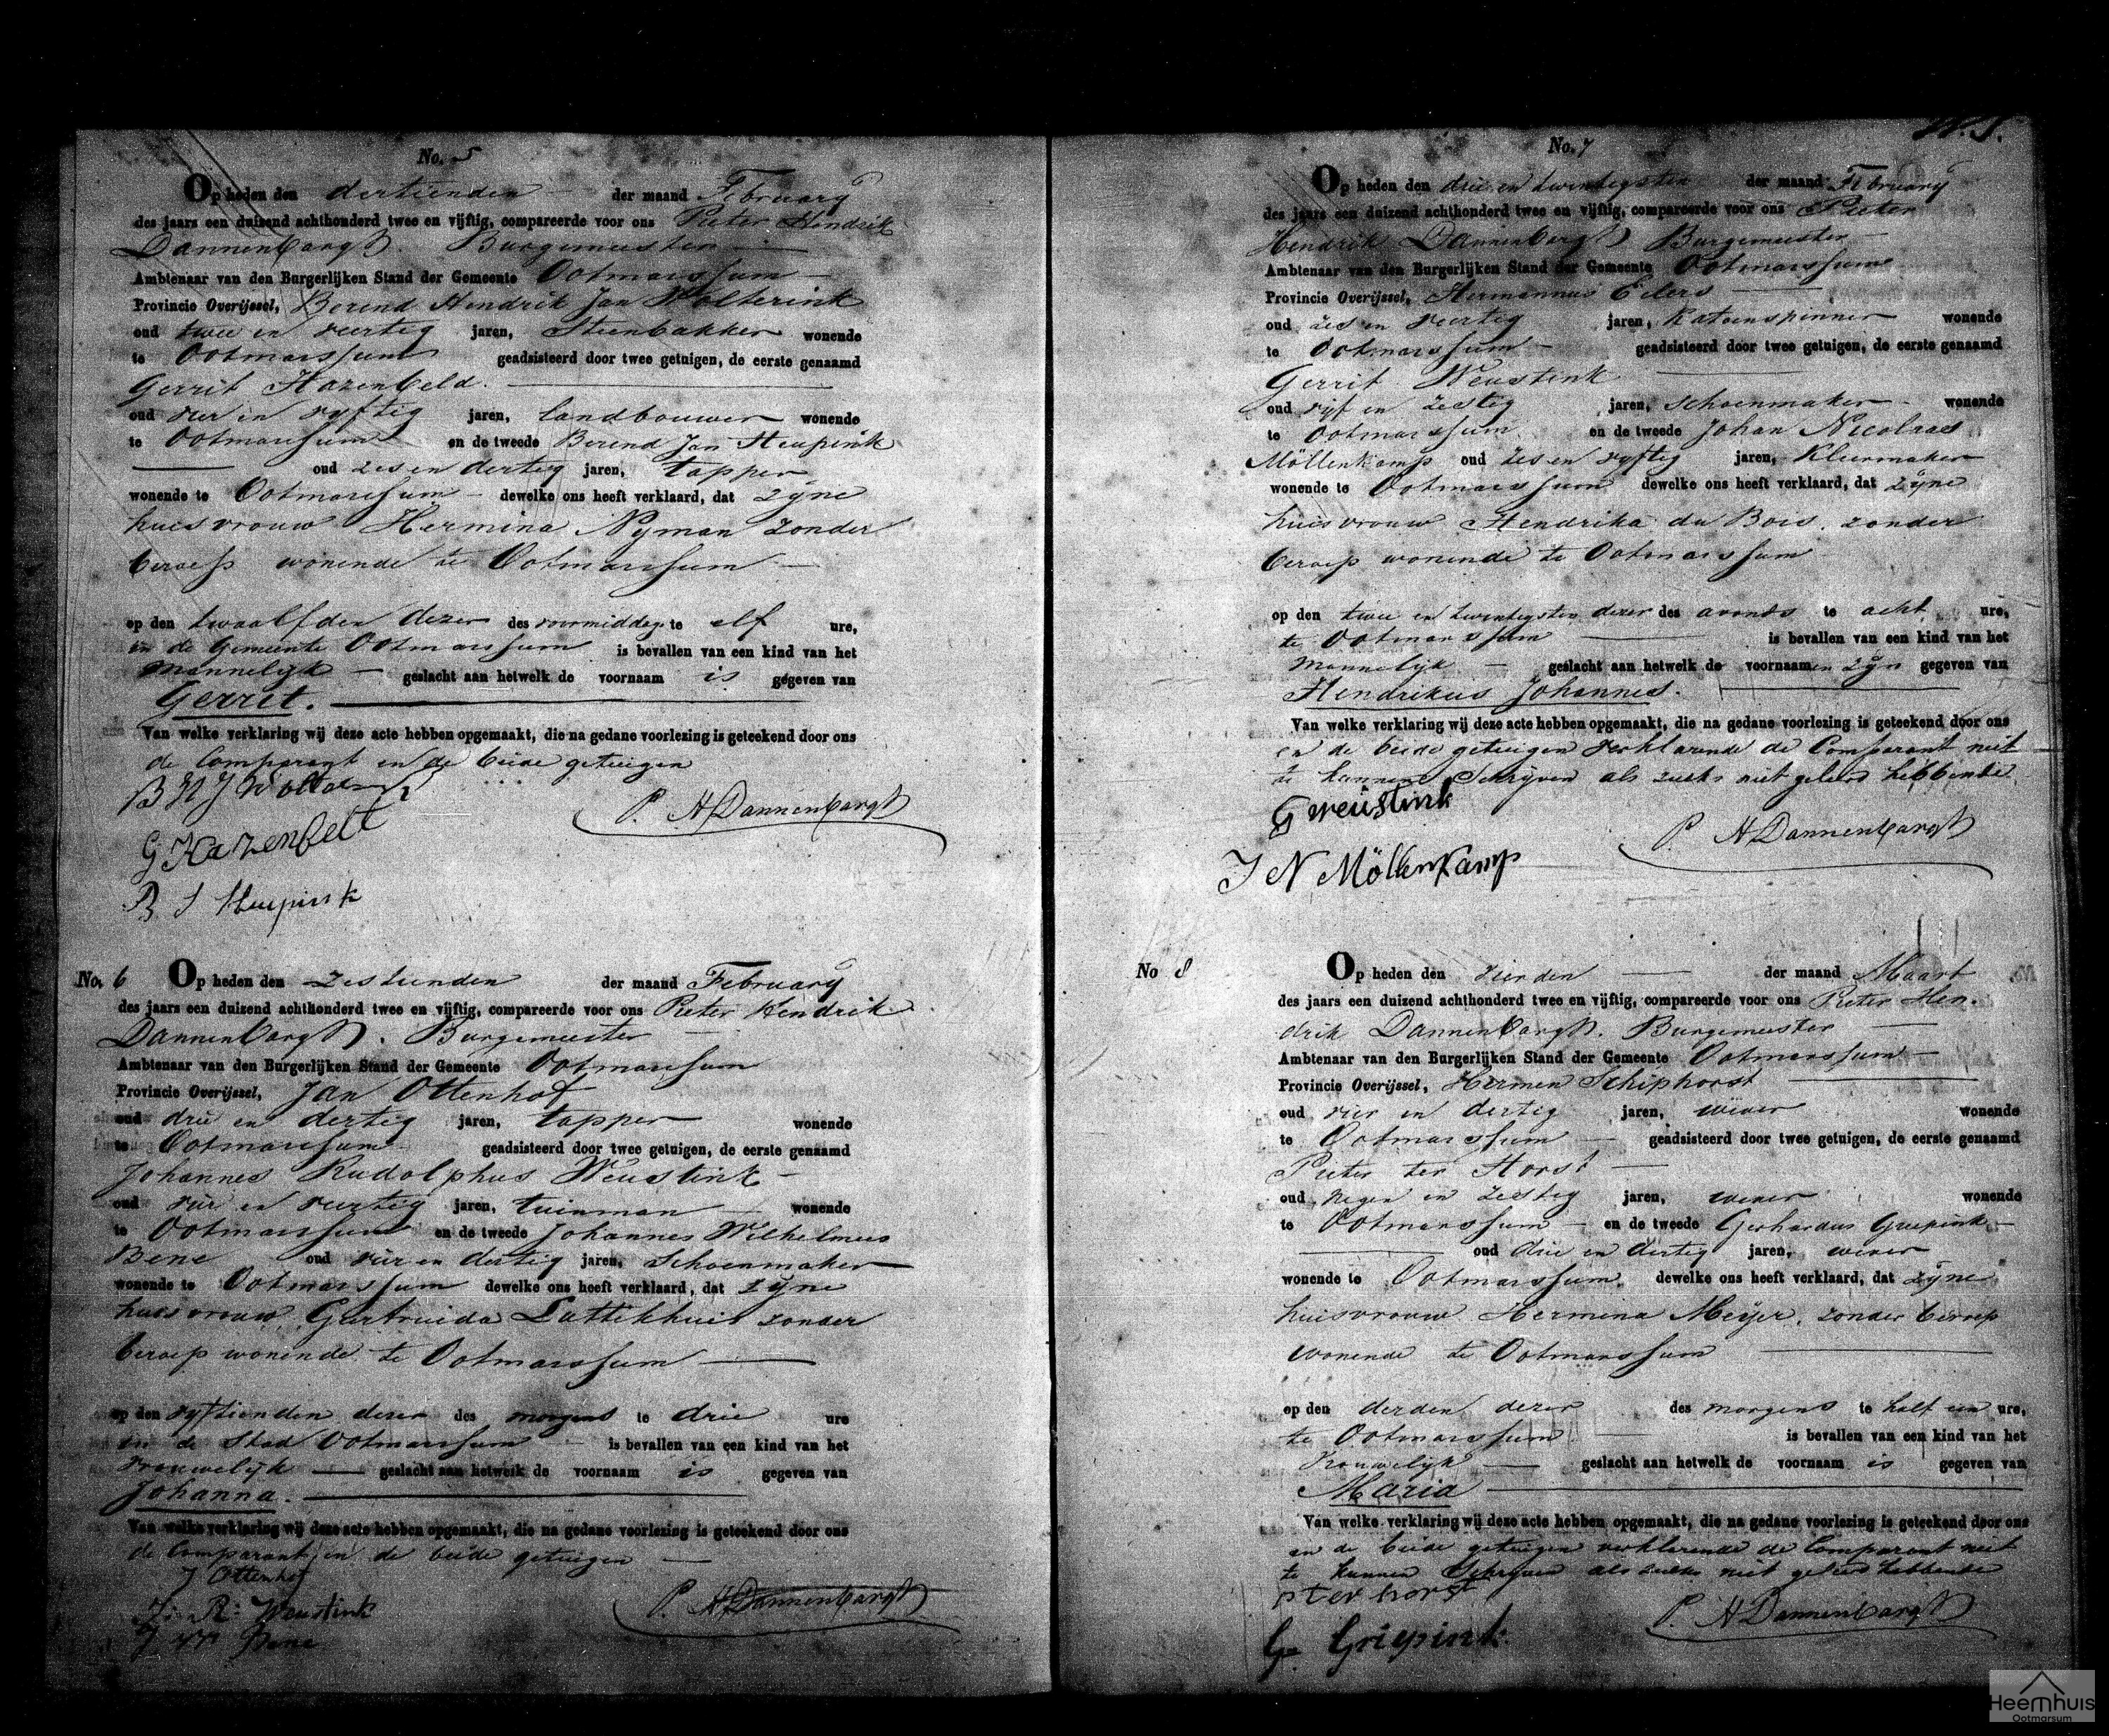 No. 5
Op heden den dertienden der maand February
des jaars een duizend achthonderd twee en vijftig, compareerde voor ons Pieter Hendrik
Dannenbargh. Burgemeester
Ambtenaar van den Burgerlijken Stand der Gemeente Ootmarssum
Provincie Overijssel, Berend Hendrik Jan Wolterink
oud twee en veertig jaren, Steenbakker wonende
te Ootmarssum geadsisteerd door twee getuigen, de eerste genaamd
Gerrit Hazenbeld.
oud vier en vyftig jaren, landbouwer wonende
te Ootmarssum en de tweede Berend Jan Heupink
oud zes en dertig jaren, tapper
wonende te Ootmarssum dewelke ons heeft verklaard, dat zyne
huisvrouw Hermina Nyman zonder
beroep wonende te Ootmarssum
op den twaalfden dezer des voormiddag te elf ure,
in de Gemeente Ootmarssum is bevallen van een kind van het
mannelyk geslacht aan hetwelk de voornaam is gegeven van
Gerret.
Van welke verklaring wij deze acte hebben opgemaakt, die na gedane voorlezing is geteekend door ons
de Comparant en de beide getuigen
B H J Wolterink
P. H Dannenbargh
G Hazenbelt
B J Heupink
No. 6 Op heden den zestienden der maand February
des jaars een duizend achthonderd twee en vijftig, compareerde voor ons Pieter Hendrik
Dannenbargh. Burgemeester
Ambtenaar van den Burgerlijken Stand der Gemeente Ootmarssum
Provincie Overijssel, Jan Ottenhof
oud drie en dertig jaren, tapper wonende
te Ootmarssum geadsisteerd door twee getuigen, de eerste genaamd
Johannes Rudolphus Weustink
oud vier en veertig jaren, tuinman wonende
te Ootmarssum en de tweede Johannes Wilhelmus
Bene oud vier en dertig jaren, Schoenmaker
wonende te Ootmarssum dewelke ons heeft verklaard, dat zyne
huisvrouw Gertruida Luttekhuis zonder
beroep wonende te Ootmarssum
op den vyftienden dezer des morgens te drie ure
in de Stad Ootmarssum is bevallen van een kind van het
vrouwelyk geslacht aan hetwelk de voornaam is gegeven van
Johanna.
Van welke verklaring wij deze acte hebben opgemaakt, die na gedane voorlezing is geteekend door ons
de Comparant en de beide getuigen
J Ottenhof
J: R: Weustink
P. H Dannenbargh
J W Bene
No. 7
Op heden den drie en twintigsten der maand February
des jaars een duizend achthonderd twee en vijftig, compareerde voor ons Pieter
Hendrik Dannenbargh Burgemeester
Ambtenaar van den Burgerlijken Stand der Gemeente Ootmarssum
Provincie Overijssel, Hermannus Eilers
oud zes en veertig jaren, Katoenspinner wonende
te Ootmarssum geadsisteerd door twee getuigen, de eerste genaamd
Gerrit Weustink
oud vyf en zestig jaren, schoenmaker wonende
te Ootmarssum en de tweede Johan Nicolaas
Möllenkamp oud zes en vyftig jaren, Kleermaker
wonende te Ootmarssum dewelke ons heeft verklaard, dat zyne
huisvrouw Hendrika du Bois. zonder
beroep wonende te Ootmarssum
op den twee en twintigsten dezer des avonds te acht ure,
te Ootmarssum is bevallen van een kind van het
mannelyk geslacht aan hetwelk de voornaamen zyn gegeven van
Hendrikus Johannes.
Van welke verklaring wij deze acte hebben opgemaakt, die na gedane voorlezing is geteekend door ons
en de beide getuigen verklarende de Comparant niet
te kunnen Schryven als zulks niet geleerd hebbende
G weustink
P. H Dannenbargh
J N Möllenkamp
No 8 Op heden den vierden der maand Maart
des jaars een duizend achthonderd twee en vijftig, compareerde voor ons Pieter Hen-
drik Dannenbargh. Burgemeester
Ambtenaar van den Burgerlijken Stand der Gemeente Ootmarssum
Provincie Overijssel, Hermen Schiphorst
oud vier en dertig jaren, wever wonende
te Ootmarssum geadsisteerd door twee getuigen, de eerste genaamd
Pieter ter Horst
oud negen en zestig jaren, wever wonende
te Ootmarssum en de tweede Gerhardus Griepink
oud drie en dertig jaren, wever
wonende te Ootmarssum dewelke ons heeft verklaard, dat zyne
huisvrouw Hermina Meyer. zonder beroep
wonende te Ootmarssum
op den derden dezer des morgens te half een ure,
te Ootmarssum is bevallen van een kind van het
Vrouwelyk geslacht aan hetwelk de voornaam is gegeven van
Maria
Van welke verklaring wij deze acte hebben opgemaakt, die na gedane voorlezing is geteekend door ons
en de beide getuigen verklarende de Comparant niet
te kunnen Schryven als zulks niet geleerd hebbende
p ter horst
P. H Dannenbargh
G Griepink
Heemhuis
Ootmarsum